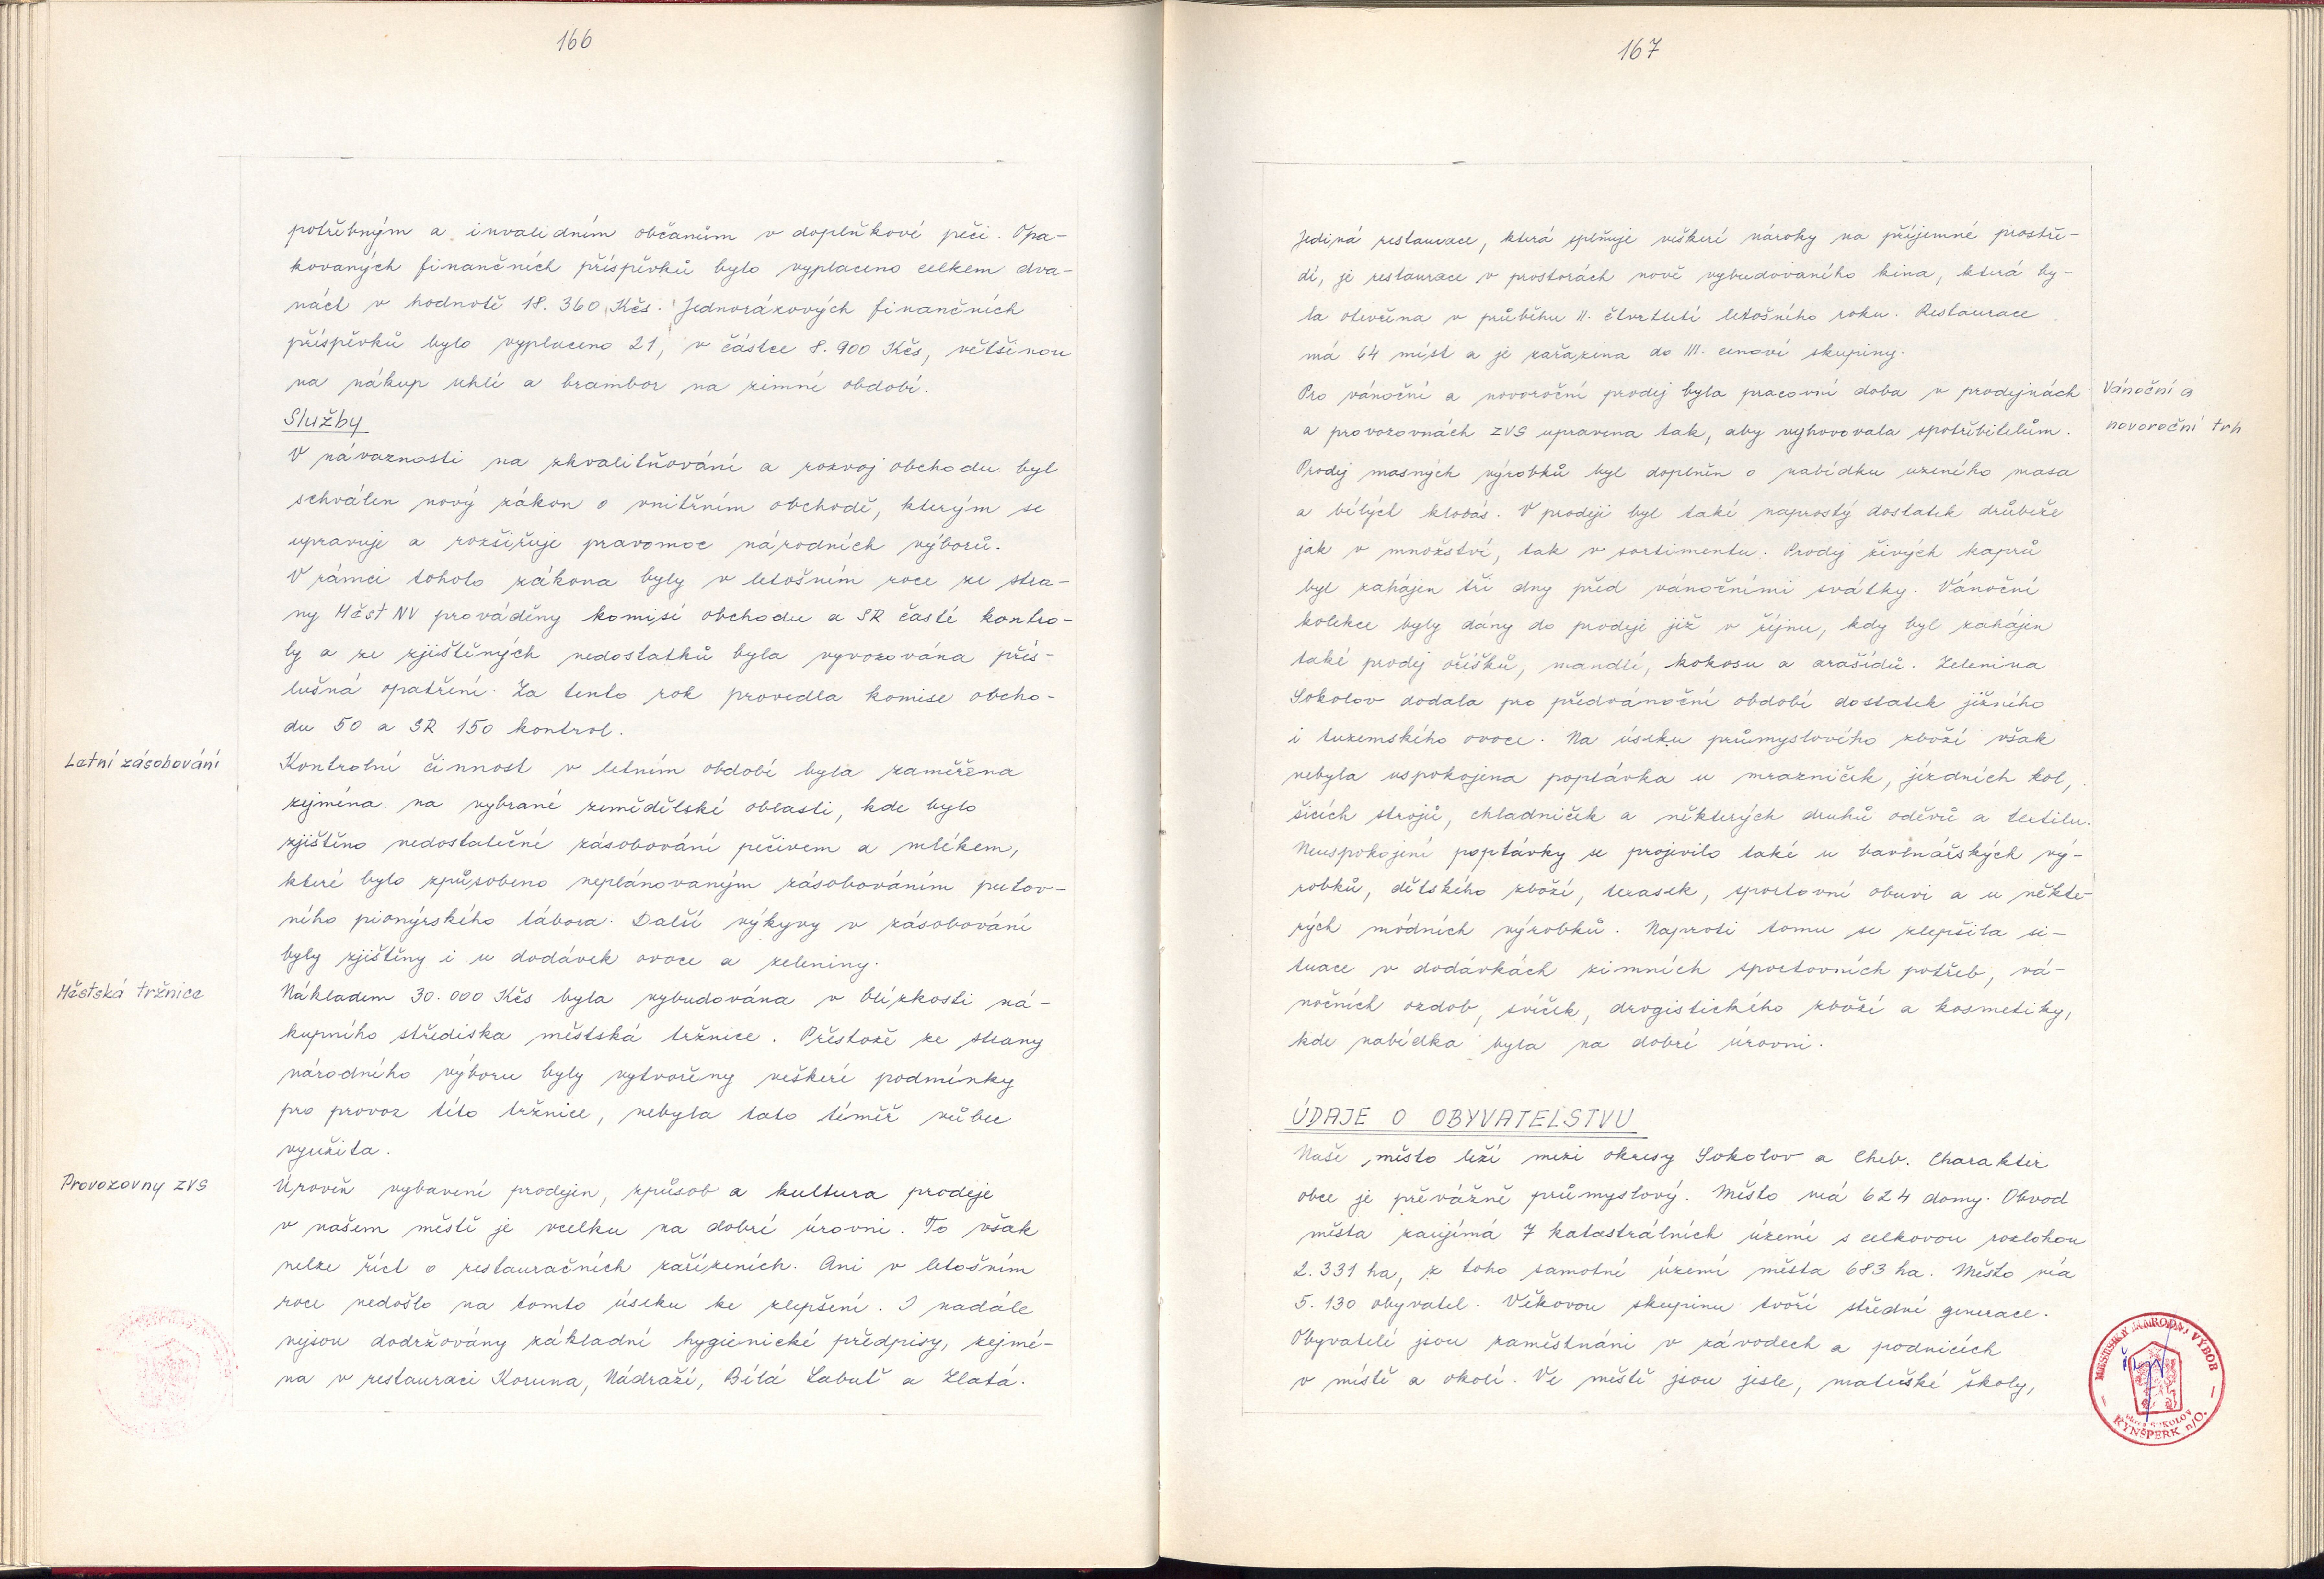 166
potřebným a invalidním občanům v doplňkové péči. Opa-
kovaných finančních příspěvků bylo vyplaceno celkem dva-
náct v hodnotě 18.360 Kčs. Jednorázových finančních
příspěvků bylo vyplaceno 21, v částce 8.900 Kčs, většinou
na nákup uhlí a brambor na zimní období.
Služby
V návaznosti na zkvalitňování a rozvoj obchodu byl
schválen nový zákon o vnitřním obchodě, kterým se
upravuje a rozšiřuje pravomoc národních výborů.
V rámci tohoto zákona byly v letošním roce ze stra-
ny Měst NV prováděny komisí obchodu a SR časté kontro-
ly a ze zjištěných nedostatků byla vyvozována přís-
lušná opatření. Za tento rok provedla komise obcho-
du 50 a SR 150 kontrol.
Letní zásobování
Kontrolní činnost v letním období byla zaměřena
zejména na vybrané zemědělské oblasti, kde bylo
zjištěno nedostatečné zásobování pečivem a mlékem,
které bylo způsobeno neplánovaným zásobováním putov-
ního pionýrského tábora. Další výkyvy v zásobování
byly zjištěny i u dodávek ovoce a zeleniny.
Městská tržnice
Nákladem 30.000 Kčs byla vybudována v blízkosti ná-
kupního střediska městská tržnice. Přestože ze strany
národního výboru byly vytvořeny veškeré podmínky
pro provoz této tržnice, nebyla tato téměř vůbec
využita.
Provozovny ZVS
Úroveň vybavení prodejen, způsob a kultura prodeje
v našem městě je vcelku na dobré úrovni. To však
nelze říct o restauračních zařízeních. Ani v letošním
roce nedošlo na tomto úseku ke zlepšení. I nadále
nejsou dodržovány základní hygienické předpisy, zejmé-
na v restauraci Koruna, Nádraží, Bílá Labuť a Zlatá.
167
Jediná restaurace, která splňuje veškeré nároky na příjemné prostře-
dí, je restaurace v prostorách nově vybudovaného kina, která by-
la otevřena v průběhu II. čtvrtletí letošního roku. Restaurace
má 64 míst a je zařazena do III. cenové skupiny.
Vánoční a
novoroční trh
Pro vánoční a novoroční prodej byla pracovní doba v prodejnách
a provozovnách ZVS upravena tak, aby vyhovovala spotřebitelům.
Prodej masných výrobků byl doplněn o nabídku uzeného masa
a bílých klobás. V prodeji byl také naprostý dostatek drůbeže
jak v množství, tak v sortimentu. Prodej živých kaprů
byl zahájen tři dny před vánočními svátky. Vánoční
kolekce byly dány do prodeje již v říjnu, kdy byl zahájen
také prodej oříšků, mandlí, kokosu a arašídů. Zelenina
Sokolov dodala pro předvánoční období dostatek jižního
i tuzemského ovoce. Na úseku průmyslového zboží však
nebyla uspokojena poptávka u mrazniček, jízdních kol,
šicích strojů, chladniček a některých druhů oděvů a textilu.
Neuspokojení poptávky se projevilo také u bavlnářských vý-
robků, dětského zboží, texasek, sportovní obuvi a u někte-
rých módních výrobků. Naproti tomu se zlepšila si-
tuace v dodávkách zimních sportovních potřeb, vá-
nočních ozdob, svíček, drogistického zboží a kosmetiky,
kde nabídka byla na dobré úrovni.
ÚDAJE O OBYVATELSTVU
Naše město leží mezi okresy Sokolov a Cheb. Charakter
obce je převážně průmyslový. Město má 624 domy. Obvod
města zaujímá 7 katastrálních území s celkovou rozlohou
2.331 ha, z toho samotné území města 683 ha. Město má
5.130 obyvatel. Věkovou skupinu tvoří střední generace.
Obyvatelé jsou zaměstnáni v závodech a podnicích
v místě a okolí. Ve městě jsou jesle, mateřské školy,
MĚSTSKÝ NÁRODNÍ VÝBOR
okres SOKOLOV
KYNŠPERK n/O.